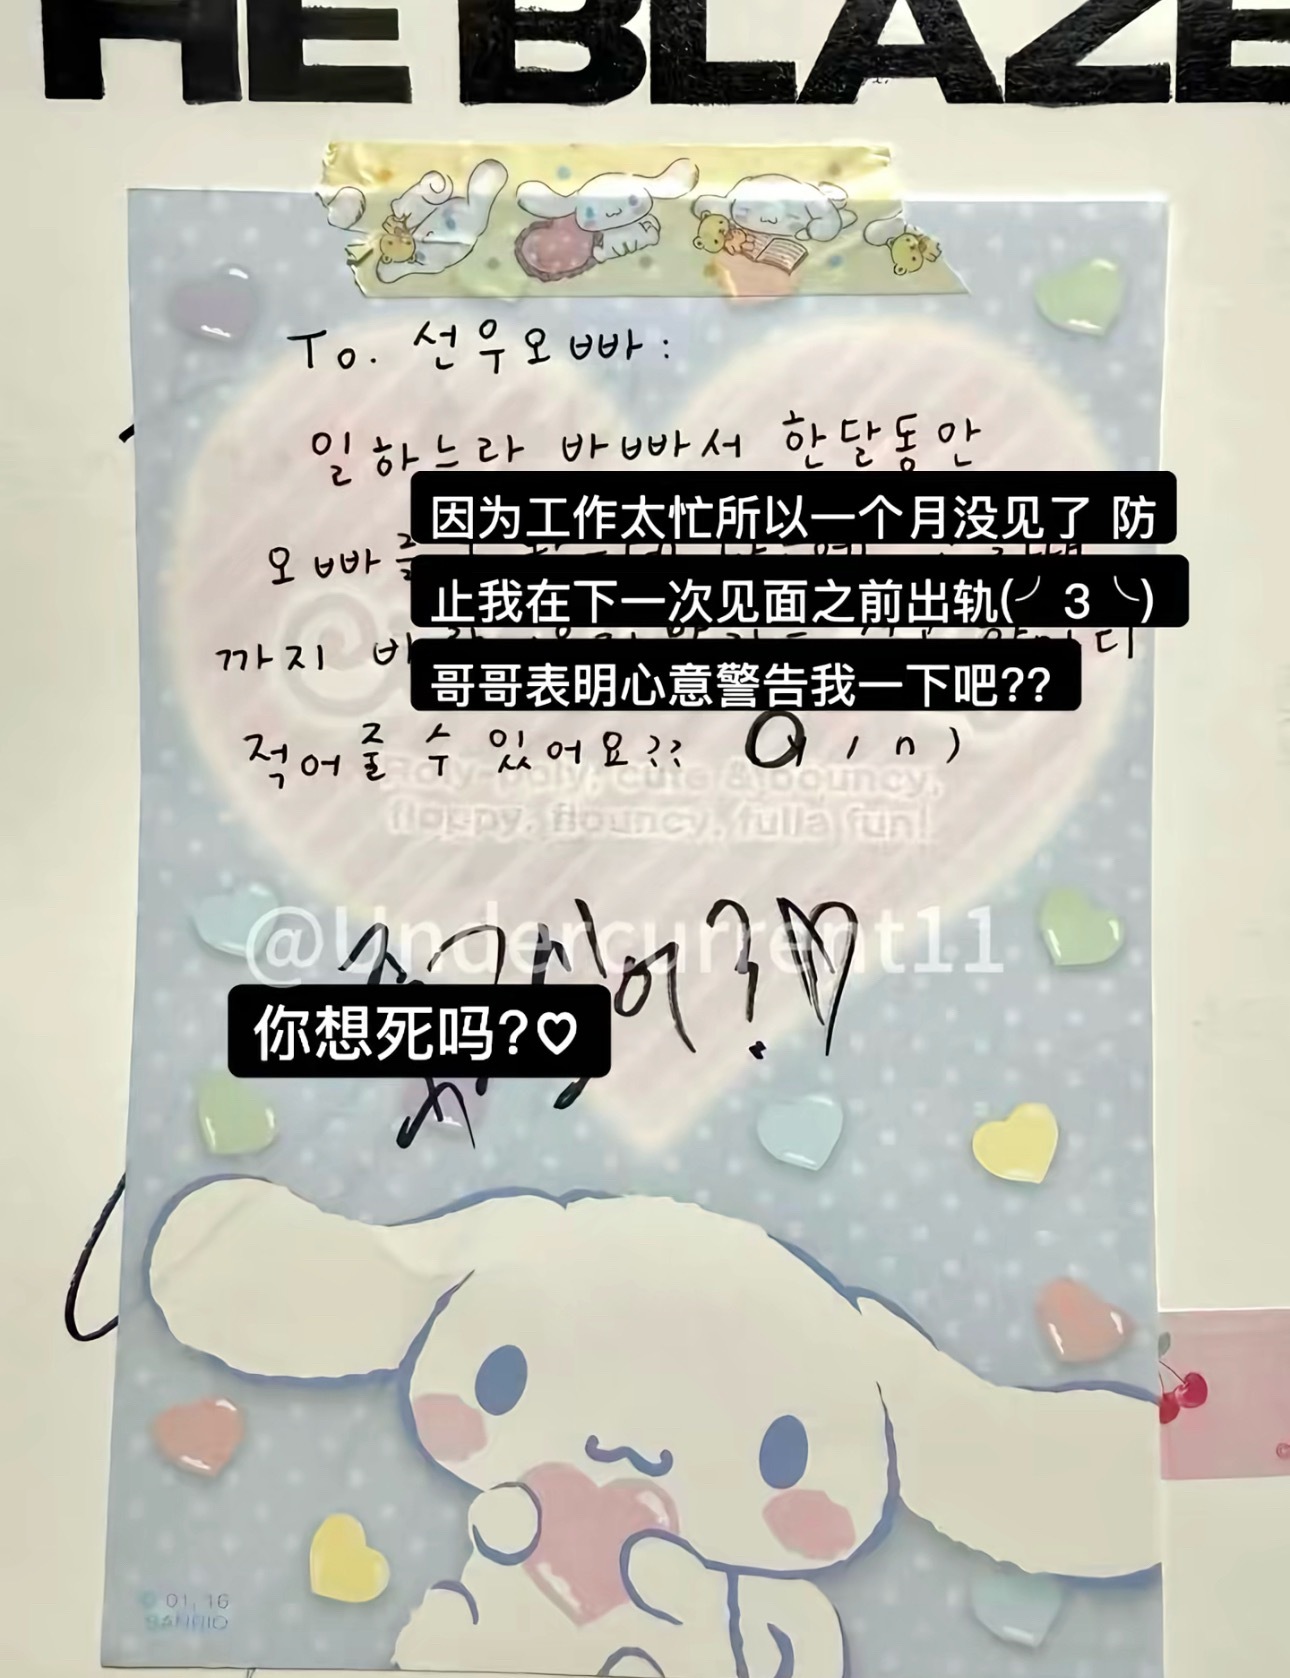 HE BLAZE
To. 선우오빠:
일하느라 바빠서 한달동안
因为工作太忙所以一个月没见了 防
오빠를
止我在下一次见面之前出轨(╯3╰)
까지
哥哥表明心意警告我一下吧??
적어줄 수 있어요??
Roly-poly, cute & bouncy,
floppy, flouncy, fulla fun!
@Undercurrent11
죽고싶어?♡
你想死吗?♡
© 01, 16
SANRIO